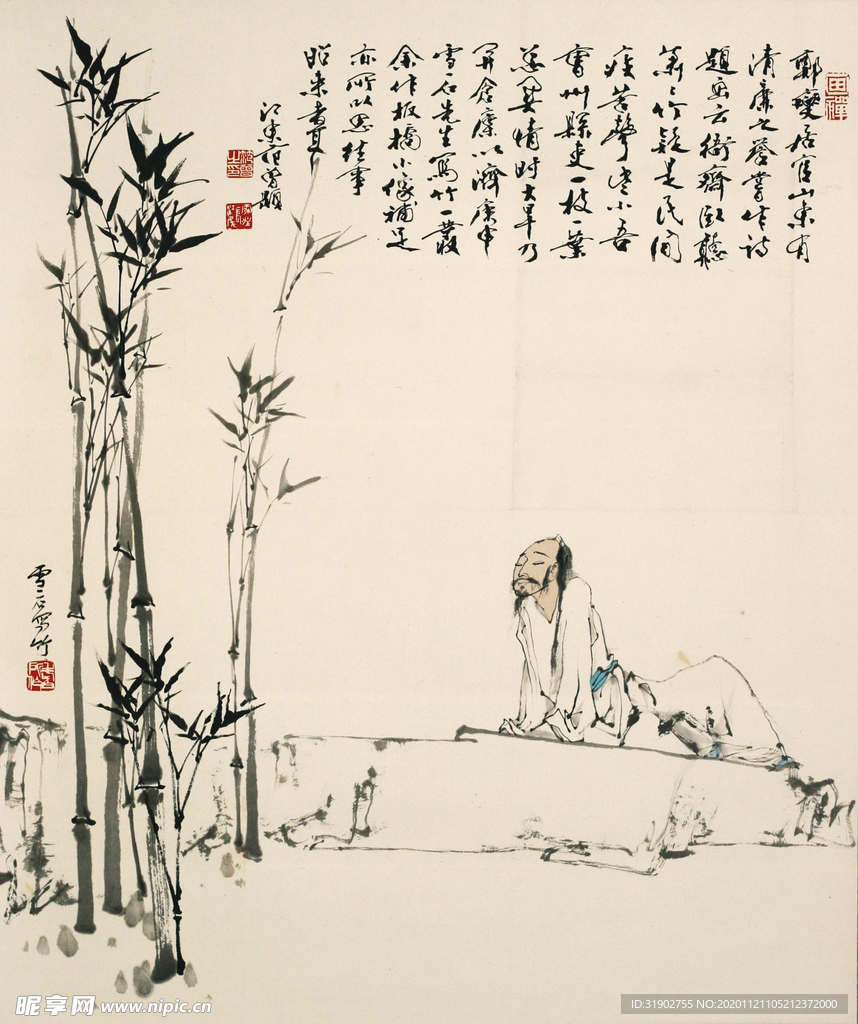 鄭燮居官山東有
清廉之譽嘗作詩
題画云衙齋臥聽
蕭〻竹疑是民間
疾苦聲些小吾
曹州縣吏一枝一葉
总關情时大旱乃
開倉廩以濟庚申
雪石先生寫竹一叢
余作板橋小像補足
亦所以思往事
昭来者耳
江東范曾題
雪石寫竹
昵享网 www.nipic.cn
ID:31902755 NO:20201121105212372000